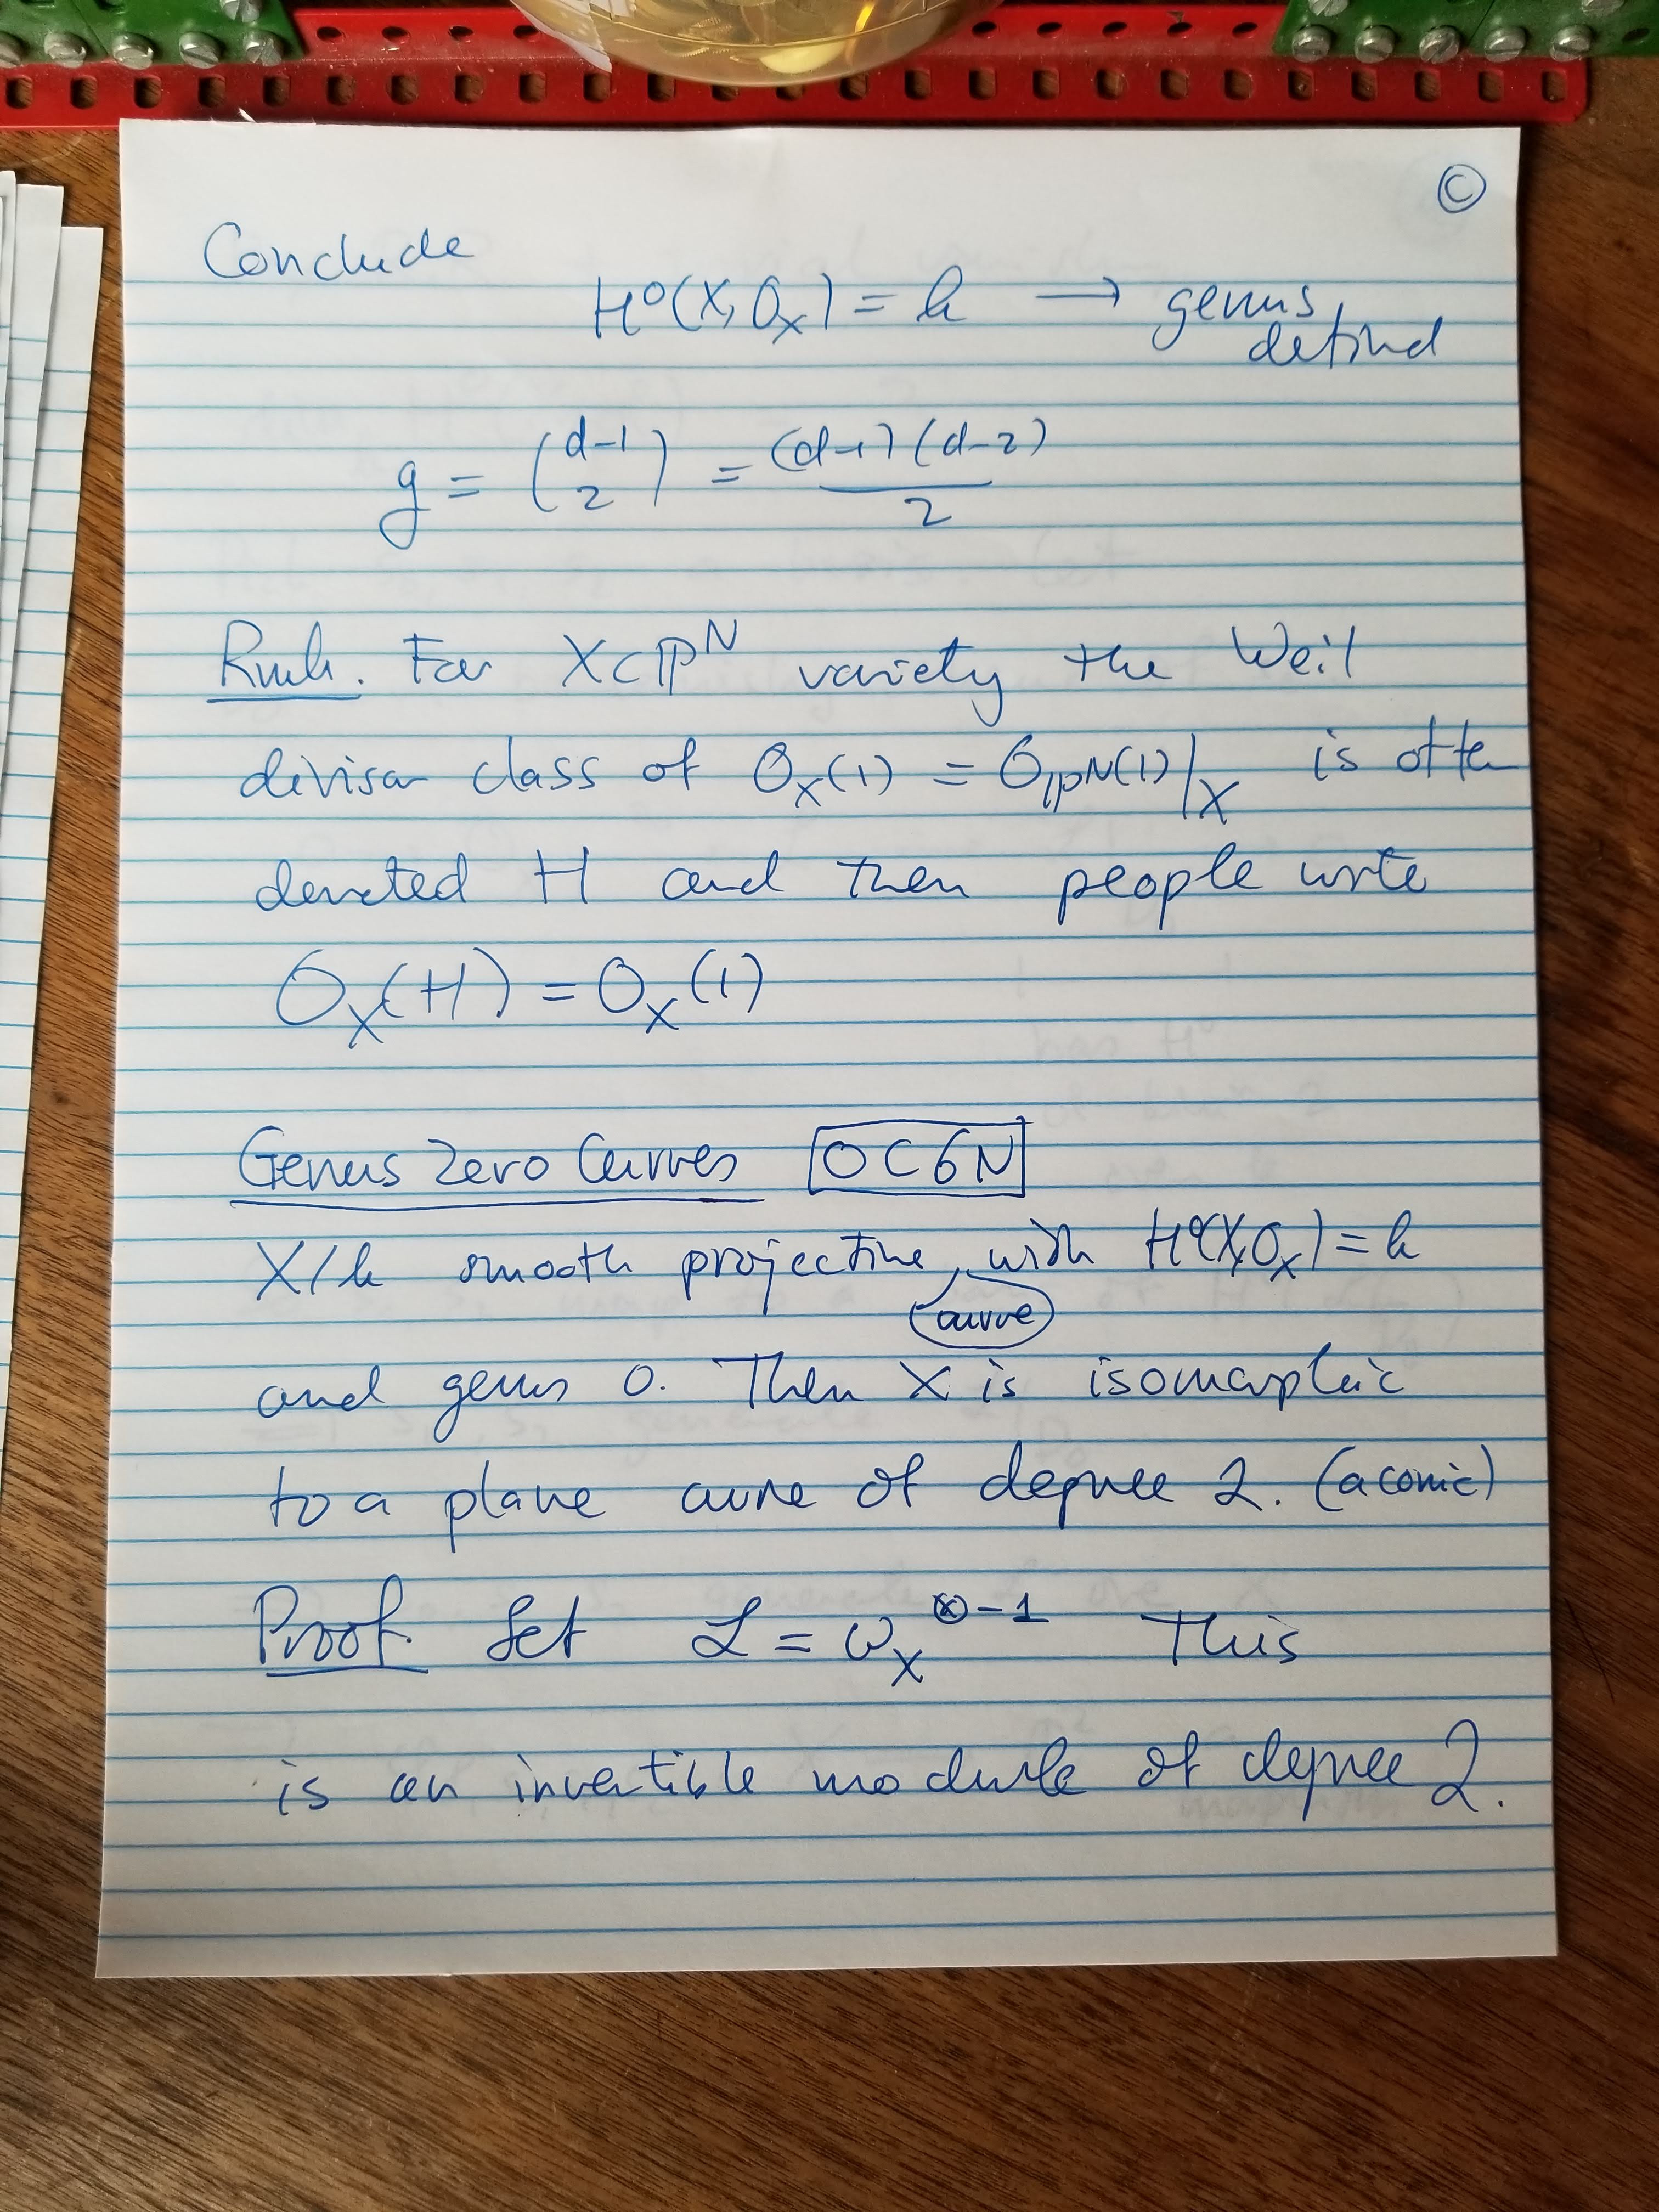 ©
Conclude
H⁰(X, O_X) = k → genus
defined
g = (d-1 2) = (d-1)(d-2)/2
Rmk. For X⊂ℙ^N variety the Weil
divisor class of O_X(1) = O_ℙN(1)|_X is often
denoted H and then people write
O_X(H) = O_X(1)
Genus Zero Curves 0C6N
X/k smooth projective, with H⁰(X,O_X) = k
curve
and genus 0. Then X is isomorphic
to a plane curve of degree 2. (a conic)
Proof. Set ℒ = ω_X^⊗-1 This
is an invertible module of degree 2.